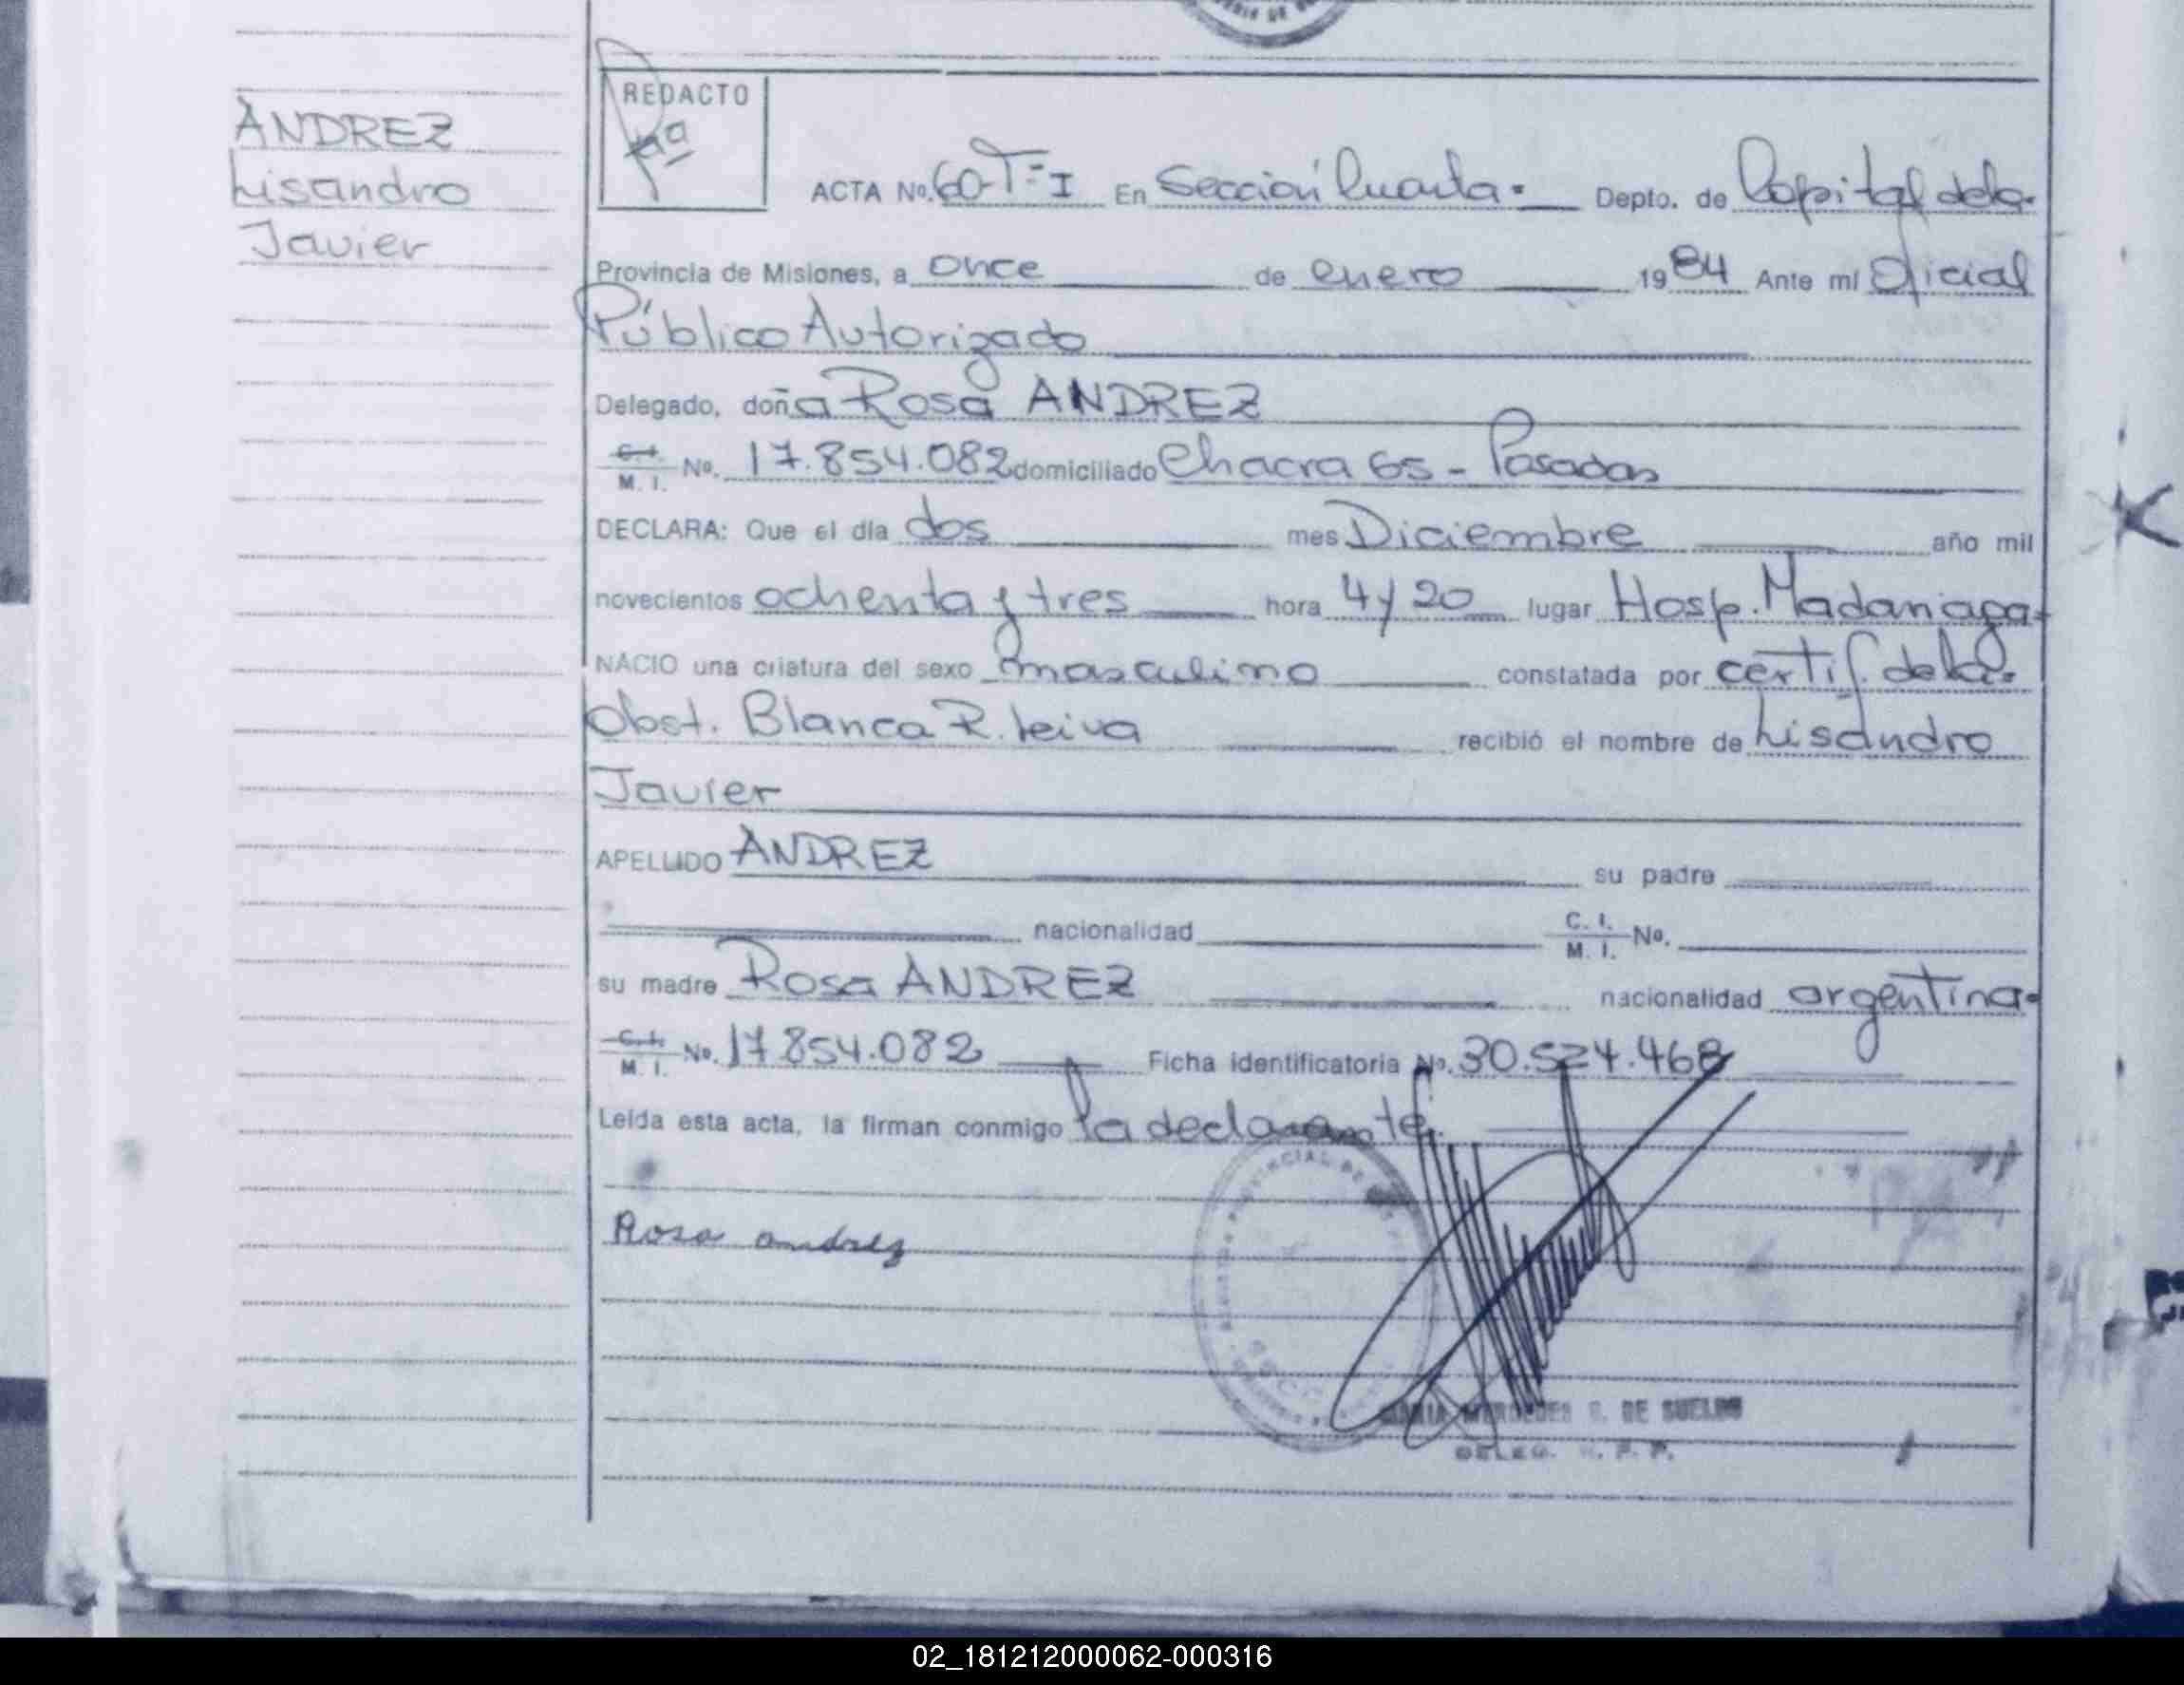 ANDREZ
Lisandro
Javier
REDACTO
ACTA No. 60-T=I En Sección Cuarta Depto. de Capital de la
Provincia de Misiones, a once de enero 1984 Ante mí Oficial
Público Autorizado
Delegado, doña Rosa ANDREZ
C.I. M. I. No. 17.854.082 domiciliado Chacra 65 - Posadas
DECLARA: Que el día dos mes Diciembre año mil
novecientos ochenta y tres hora 4 y 20 lugar Hosp. Madariaga
NACIO una criatura del sexo masculino constatada por certif. de la
Obst. Blanca R. Leiva recibió el nombre de Lisandro
Javier
APELLIDO ANDREZ su padre
nacionalidad C. I. M. I. No.
su madre Rosa ANDREZ nacionalidad argentina
C.I. M. I. No. 17.854.082 Ficha identificatoria No. 30.524.468
Leída esta acta, la firman conmigo la declarante
Rosa andrez
MARIA MERCEDES DE SUELDO
DELEG. R. P. P.
02_181212000062-000316